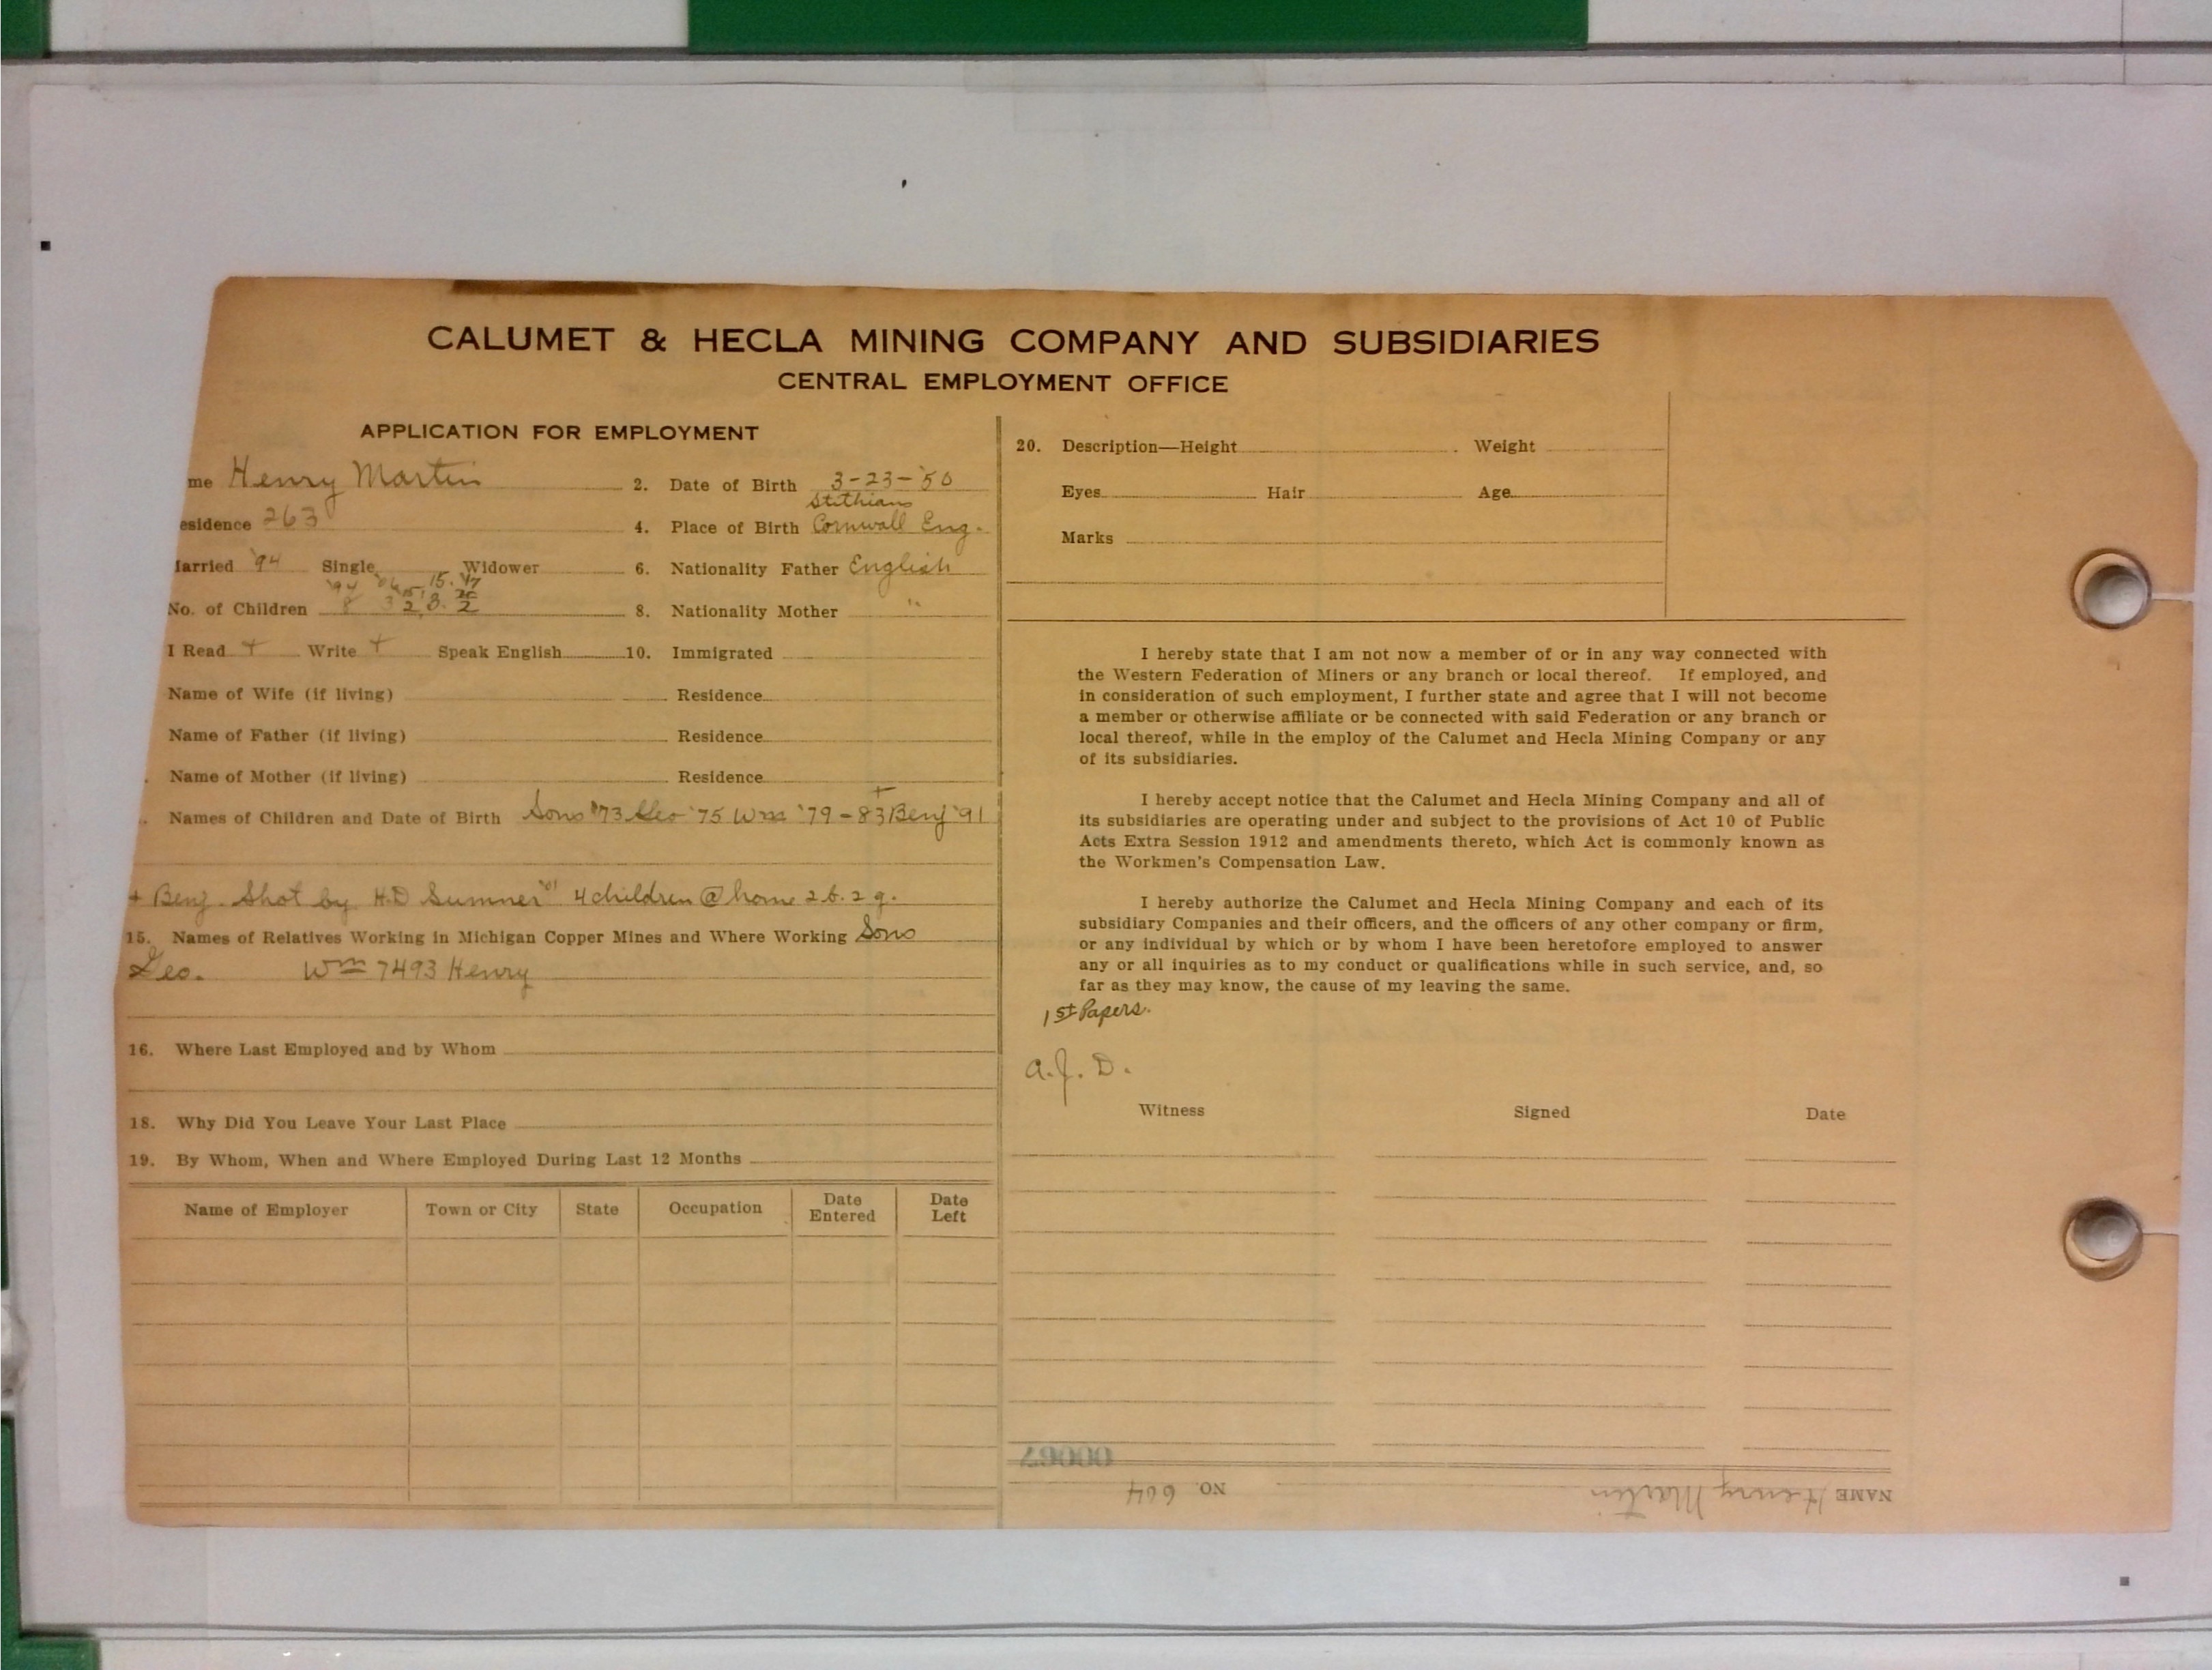 CALUMET & HECLA MINING COMPANY AND SUBSIDIARIES
CENTRAL EMPLOYMENT OFFICE
APPLICATION FOR EMPLOYMENT
me Henry Martin 2. Date of Birth 3-23-'50
esidence 263 4. Place of Birth Stithians Cornwall Eng.
arried '94 Single Widower 6. Nationality Father English
'94 '06 15. '17
No. of Children 8 3 2, 3. 2 8. Nationality Mother "
I Read + Write + Speak English 10. Immigrated
Name of Wife (if living) Residence
Name of Father (if living) Residence
Name of Mother (if living) Residence
Names of Children and Date of Birth Sons '73 Geo '75 Wm '79 - 83 + Benj '91
+ Benj. Shot by H.D Sumner '01 4 children @ home 2 b. 2 g.
15. Names of Relatives Working in Michigan Copper Mines and Where Working Sons
Geo. Wm 7493 Henry
16. Where Last Employed and by Whom
18. Why Did You Leave Your Last Place
19. By Whom, When and Where Employed During Last 12 Months
Name of Employer Town or City State Occupation Date Entered Date Left
20. Description—Height Weight
Eyes Hair Age
Marks
I hereby state that I am not now a member of or in any way connected with
the Western Federation of Miners or any branch or local thereof. If employed, and
in consideration of such employment, I further state and agree that I will not become
a member or otherwise affiliate or be connected with said Federation or any branch or
local thereof, while in the employ of the Calumet and Hecla Mining Company or any
of its subsidiaries.
I hereby accept notice that the Calumet and Hecla Mining Company and all of
its subsidiaries are operating under and subject to the provisions of Act 10 of Public
Acts Extra Session 1912 and amendments thereto, which Act is commonly known as
the Workmen's Compensation Law.
I hereby authorize the Calumet and Hecla Mining Company and each of its
subsidiary Companies and their officers, and the officers of any other company or firm,
or any individual by which or by whom I have been heretofore employed to answer
any or all inquiries as to my conduct or qualifications while in such service, and, so
far as they may know, the cause of my leaving the same.
1st Papers.
A.J.D.
Witness Signed Date
00067
NAME Henry Martin NO. 664